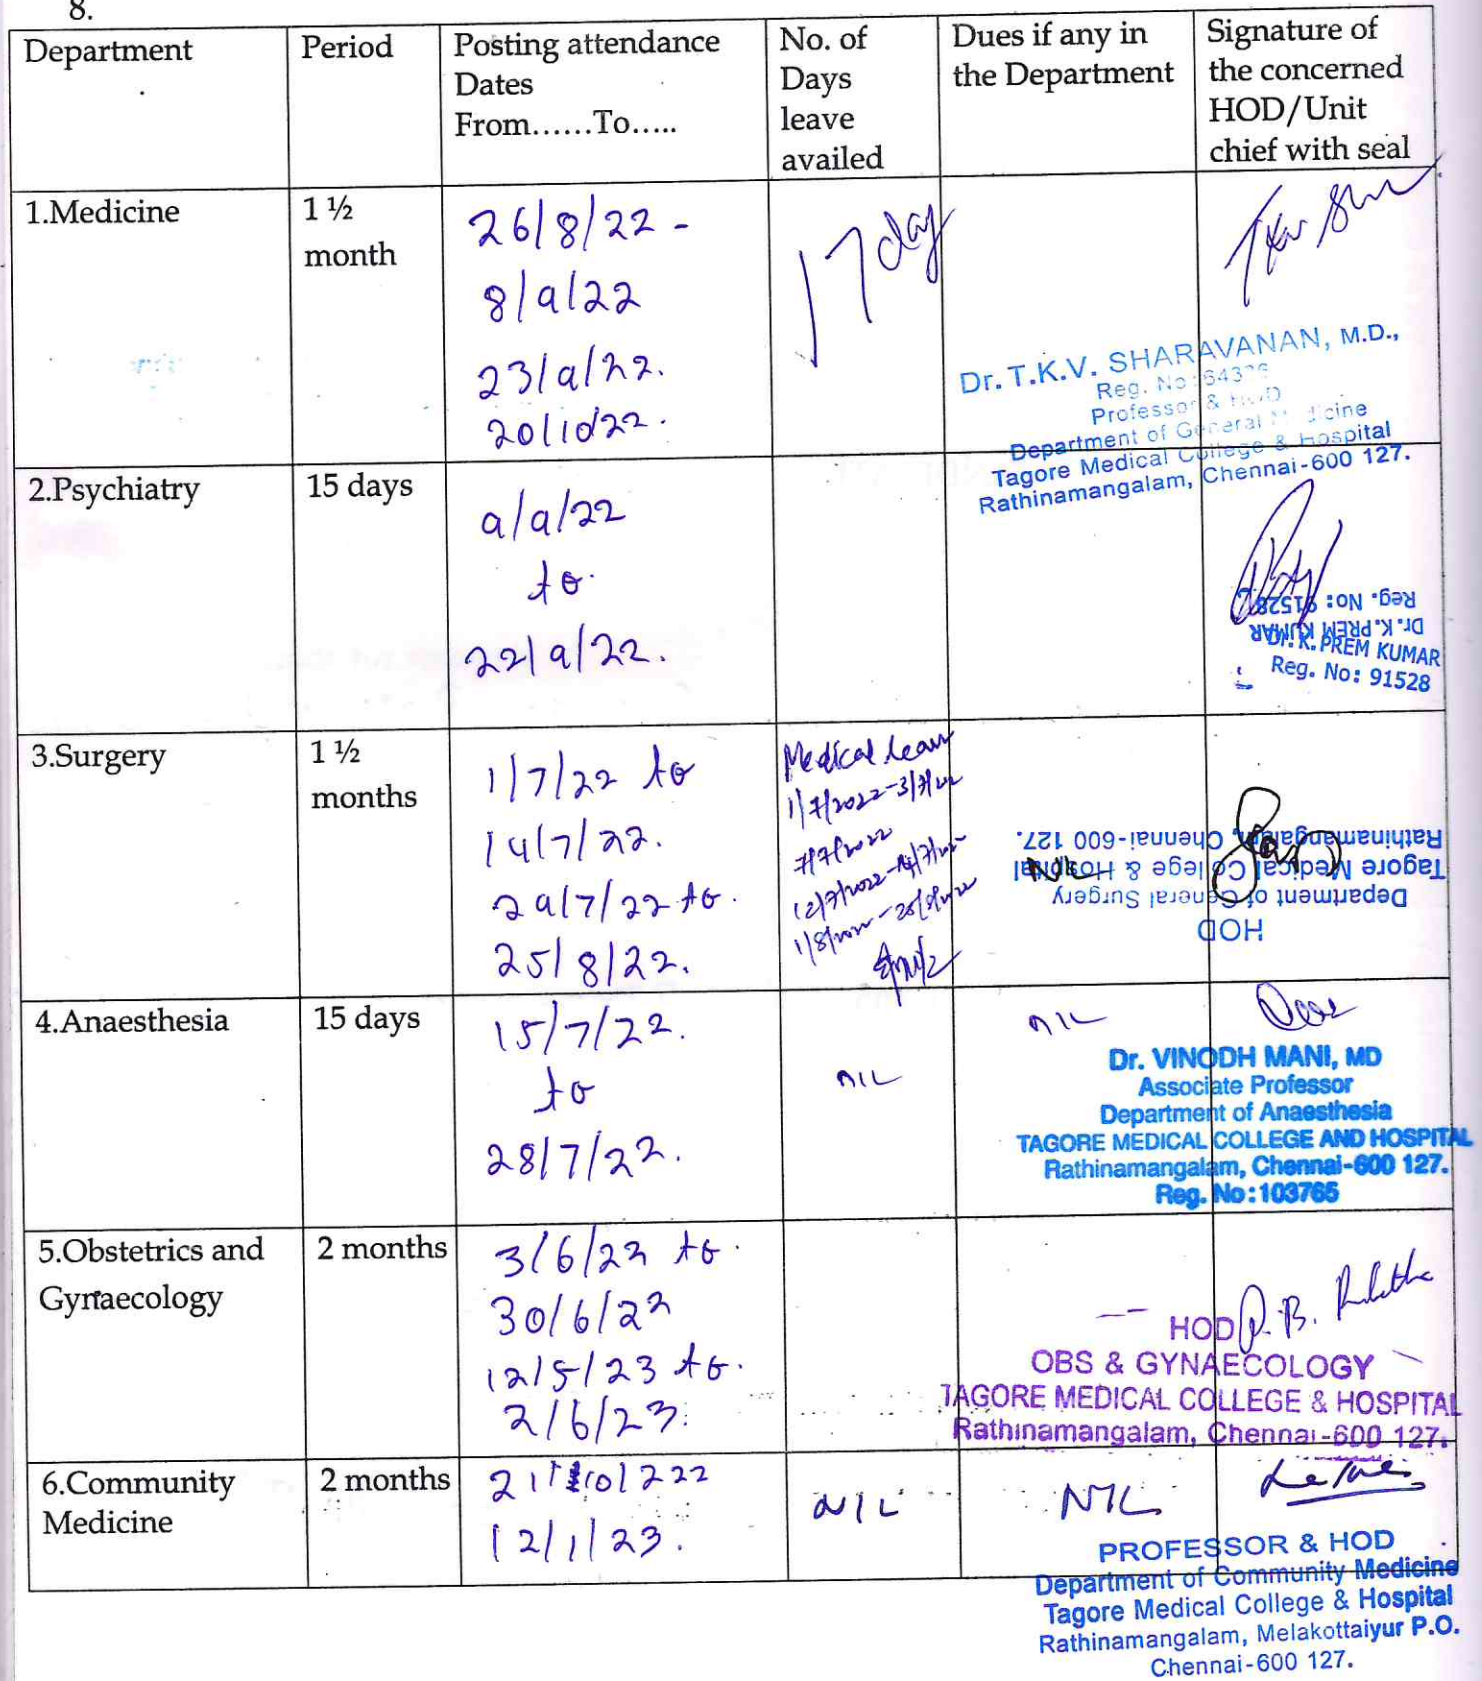 8.
Department
Period
Posting attendance
Dates
From......To.....
No. of
Days
leave
availed
Dues if any in
the Department
Signature of
the concerned
HOD/Unit
chief with seal
1.Medicine
1 ½
month
26/8/22 -
8/9/22
23/9/22.
20/10/22.
17 day
Dr. T.K.V. SHARAVANAN, M.D.,
Reg. No:
Professor & HOD
Department of General Medicine
Tagore Medical College & Hospital
Rathinamangalam, Chennai-600 127.
2.Psychiatry
15 days
9/9/22
to
22/9/22.
Reg. No: 91528
Dr. K. PREM KUMAR
Dr. K. PREM KUMAR
Reg. No: 91528
3.Surgery
1 ½
months
1/7/22 to
14/7/22.
29/7/22 to.
25/8/22.
Medical leave
1/7/2022-3/7/22
7/7/2022
12/7/2022-14/7/22
NIL
HOD
Department of General Surgery
Tagore Medical College & Hospital
Rathinamangalam, Chennai-600 127.
4.Anaesthesia
15 days
15/7/22.
to
28/7/22.
NIL
NIL
Dr. VINODH MANI, MD
Associate Professor
Department of Anaesthesia
TAGORE MEDICAL COLLEGE AND HOSPITAL
Rathinamangalam, Chennai-600 127.
Reg. No:103765
5.Obstetrics and
Gynaecology
2 months
3/6/22 to.
30/6/22
12/5/23 to.
2/6/23.
HOD
OBS & GYNAECOLOGY
TAGORE MEDICAL COLLEGE & HOSPITAL
Rathinamangalam, Chennai-600 127.
6.Community
Medicine
2 months
12/1/23.
NIL
NIL
PROFESSOR & HOD
Department of Community Medicine
Tagore Medical College & Hospital
Rathinamangalam, Melakottaiyur P.O.
Chennai-600 127.